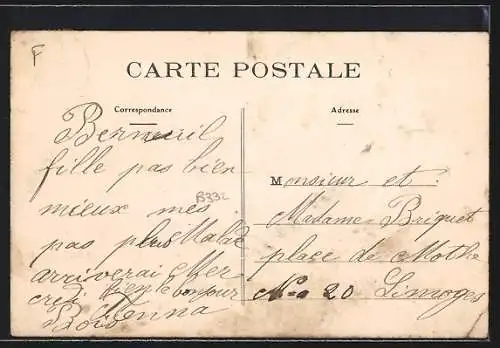 F
CARTE POSTALE
Correspondance
Adresse
Berneuil
fille pas bien
mieux mes
pas plus Malade
arriverai Mer
credi bien le bonjour
B332
Monsieur et
Madame Briquet
place de Mothe
No 20 Limoges